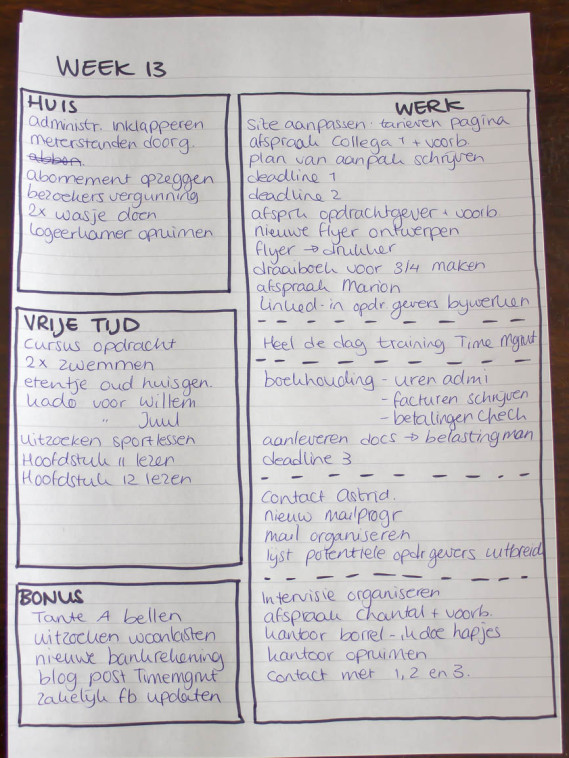 WEEK 13
HUIS
administr. inklapperen
meterstanden doorg.
abonnement opzeggen
bezoekers vergunning
2x wasje doen
logeerkamer opruimen
VRIJE TIJD
cursus opdracht
2x zwemmen
etentje oud huisgen.
kado voor Willem
" Juul
uitzoeken sportlessen
Hoofdstuk 11 lezen
Hoofdstuk 12 lezen
BONUS
Tante A bellen
uitzoeken woonlasten
nieuwe bankrekening
blog post Timemgmt
zakelijk fb updaten
WERK
site aanpassen - tarieven pagina
afspraak collega 1 + voorb.
plan van aanpak schrijven
deadline 1
deadline 2
afsprk opdrachtgever + voorb
nieuwe flyer ontwerpen
flyer → drukker
draaiboek voor 3/4 maken
afspraak Marion
linked-in opdr.gevers bijwerken
Heel de dag training Time Mgmt
boekhouding - uren admi
- facturen schrijven
- betalingen check
aanleveren docs → belastingman
deadline 3
contact Astrid.
nieuw mailprogr
mail organiseren
lijst potentiele opdr gevers uitbreid
Intervisie organiseren
afspraak Chantal + voorb.
kantoor borrel - ik doe hapjes
kantoor opruimen
contact met 1, 2 en 3.